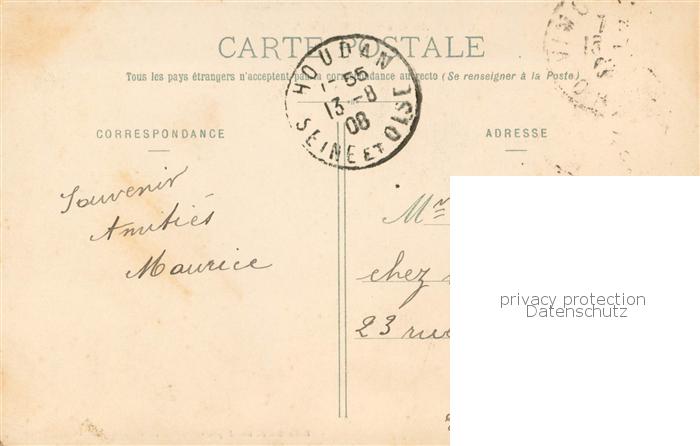 CARTE POSTALE
Tous les pays étrangers n'acceptent pas la correspondance au recto (Se renseigner à la Poste)
HOUDAN
1-55
13-8
08
SEINE ET OISE
CORRESPONDANCE
ADRESSE
Souvenir
Amitiés
Maurice
Mr
chez
23 rue
privacy protection
Datenschutz